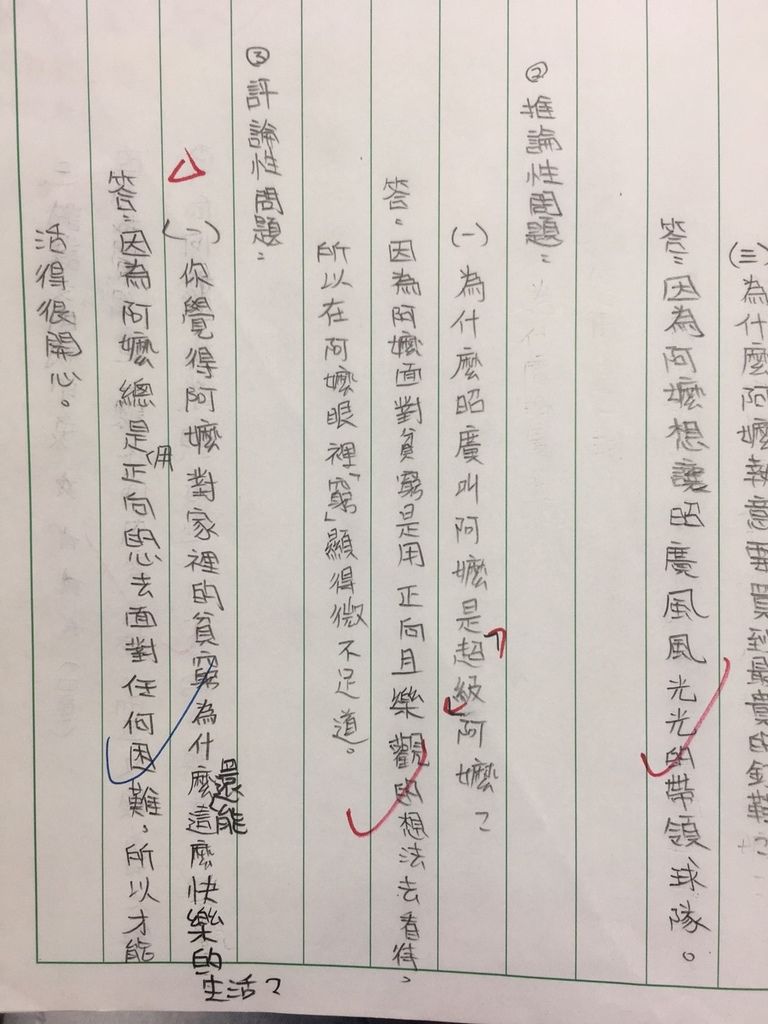 (三)為什麼阿嬤執意要買到最貴的釘鞋?
答:因為阿嬤想讓昭廣風風光光的帶領球隊。
②推論性問題:
(一)為什麼昭廣叫阿嬤是「超級」阿嬤?
答:因為阿嬤面對貧窮是用正向且樂觀的想法去看待,
所以在阿嬤眼裡「窮」顯得微不足道。
③評論性問題:
(一)你覺得阿嬤對家裡的貧窮為什麼還能這麼快樂的生活?
答:因為阿嬤總是用正向的心去面對任何困難,所以才能
活得很開心。